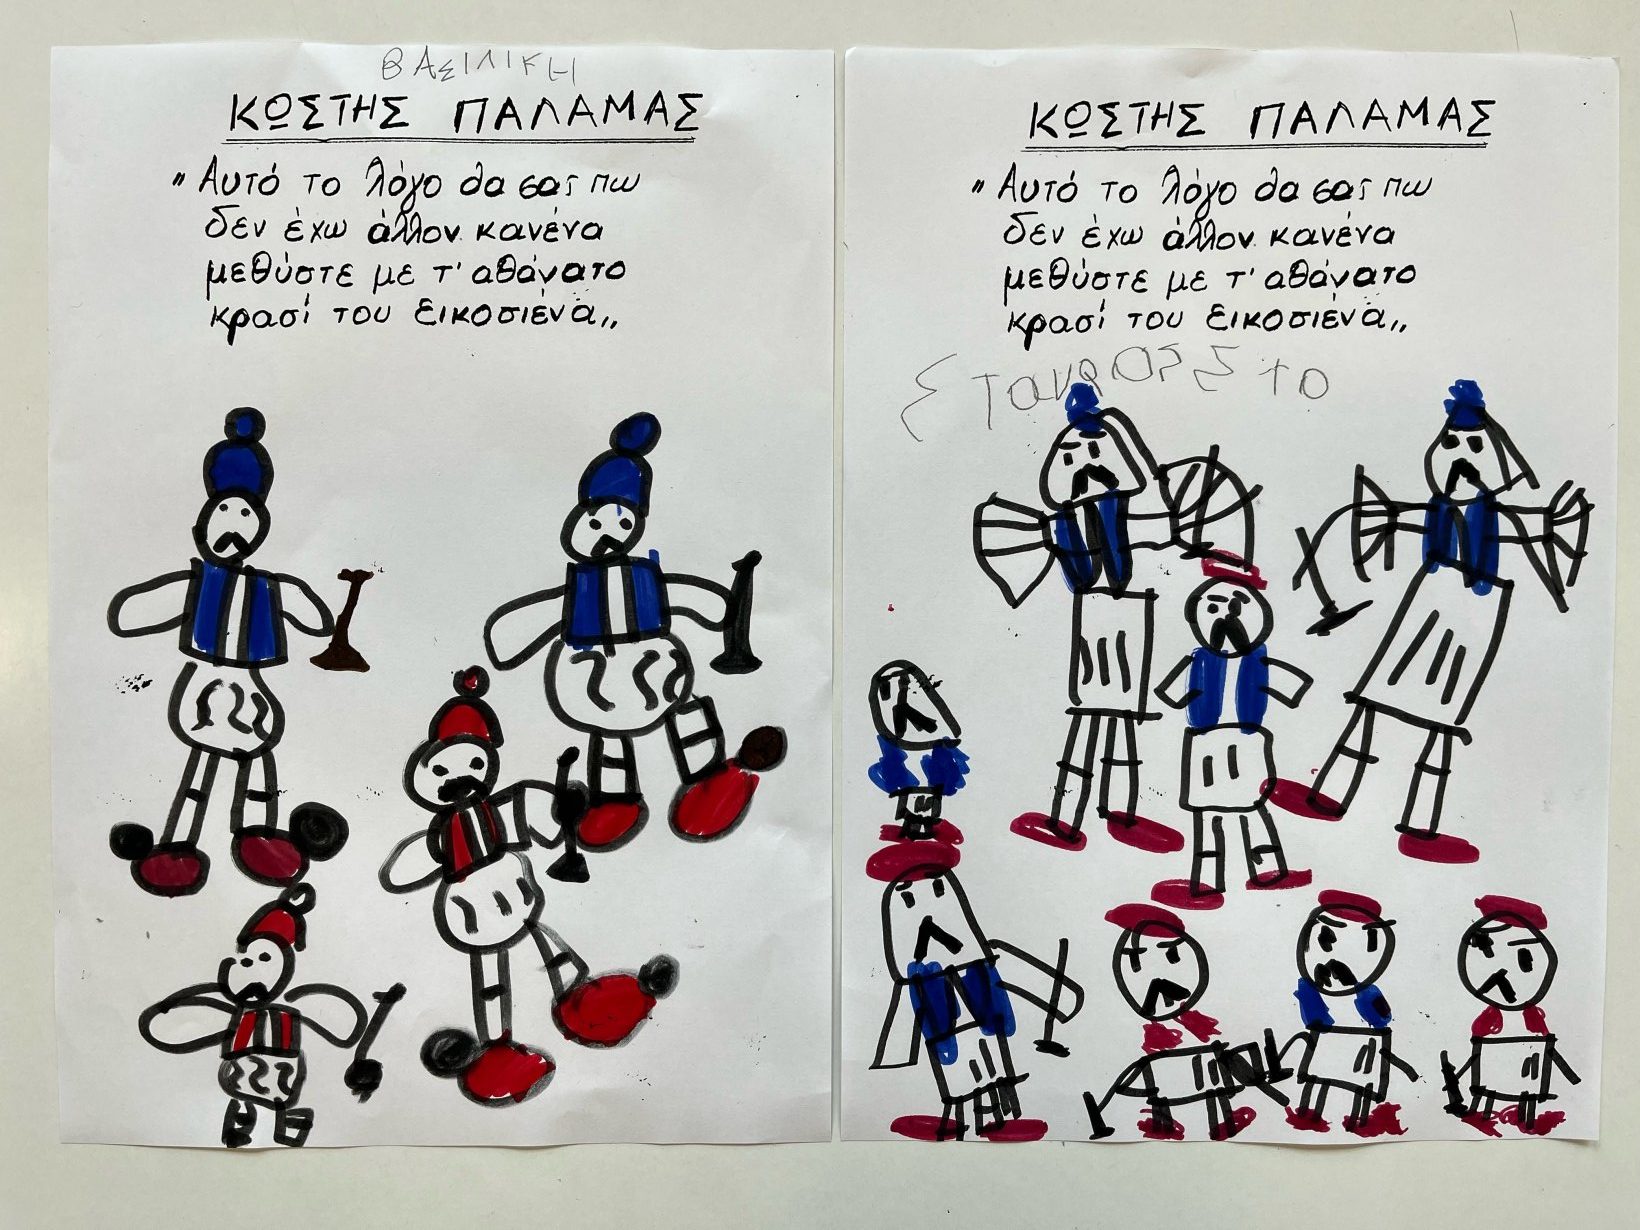 ΒΑΣΙΛΙΚΗ
ΚΩΣΤΗΣ ΠΑΛΑΜΑΣ
"Αυτό το λόγο θα σας πω
δεν έχω άλλον κανένα
μεθύστε με τ' αθάνατο
κρασί του εικοσιένα,,
ΚΩΣΤΗΣ ΠΑΛΑΜΑΣ
"Αυτό το λόγο θα σας πω
δεν έχω άλλον κανένα
μεθύστε με τ' αθάνατο
κρασί του εικοσιένα,,